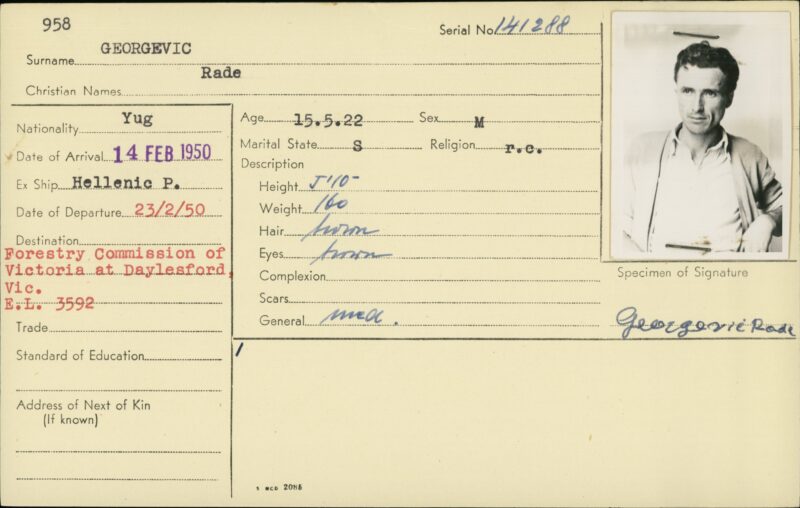 958
Serial No. 141288
Surname GEORGEVIC
Christian Names Rade
Nationality Yug
Date of Arrival 14 FEB 1950
Ex Ship Hellenic P.
Date of Departure 23/2/50
Destination
Forestry Commission of
Victoria at Daylesford,
Vic.
E.L. 3592
Trade
Standard of Education
Address of Next of Kin
(If known)
Age 15.5.22 Sex M
Marital State S Religion r.c.
Description
Height 5'10
Weight 160
Hair brown
Eyes brown
Complexion
Scars
General med.
Specimen of Signature
Georgevic Rade